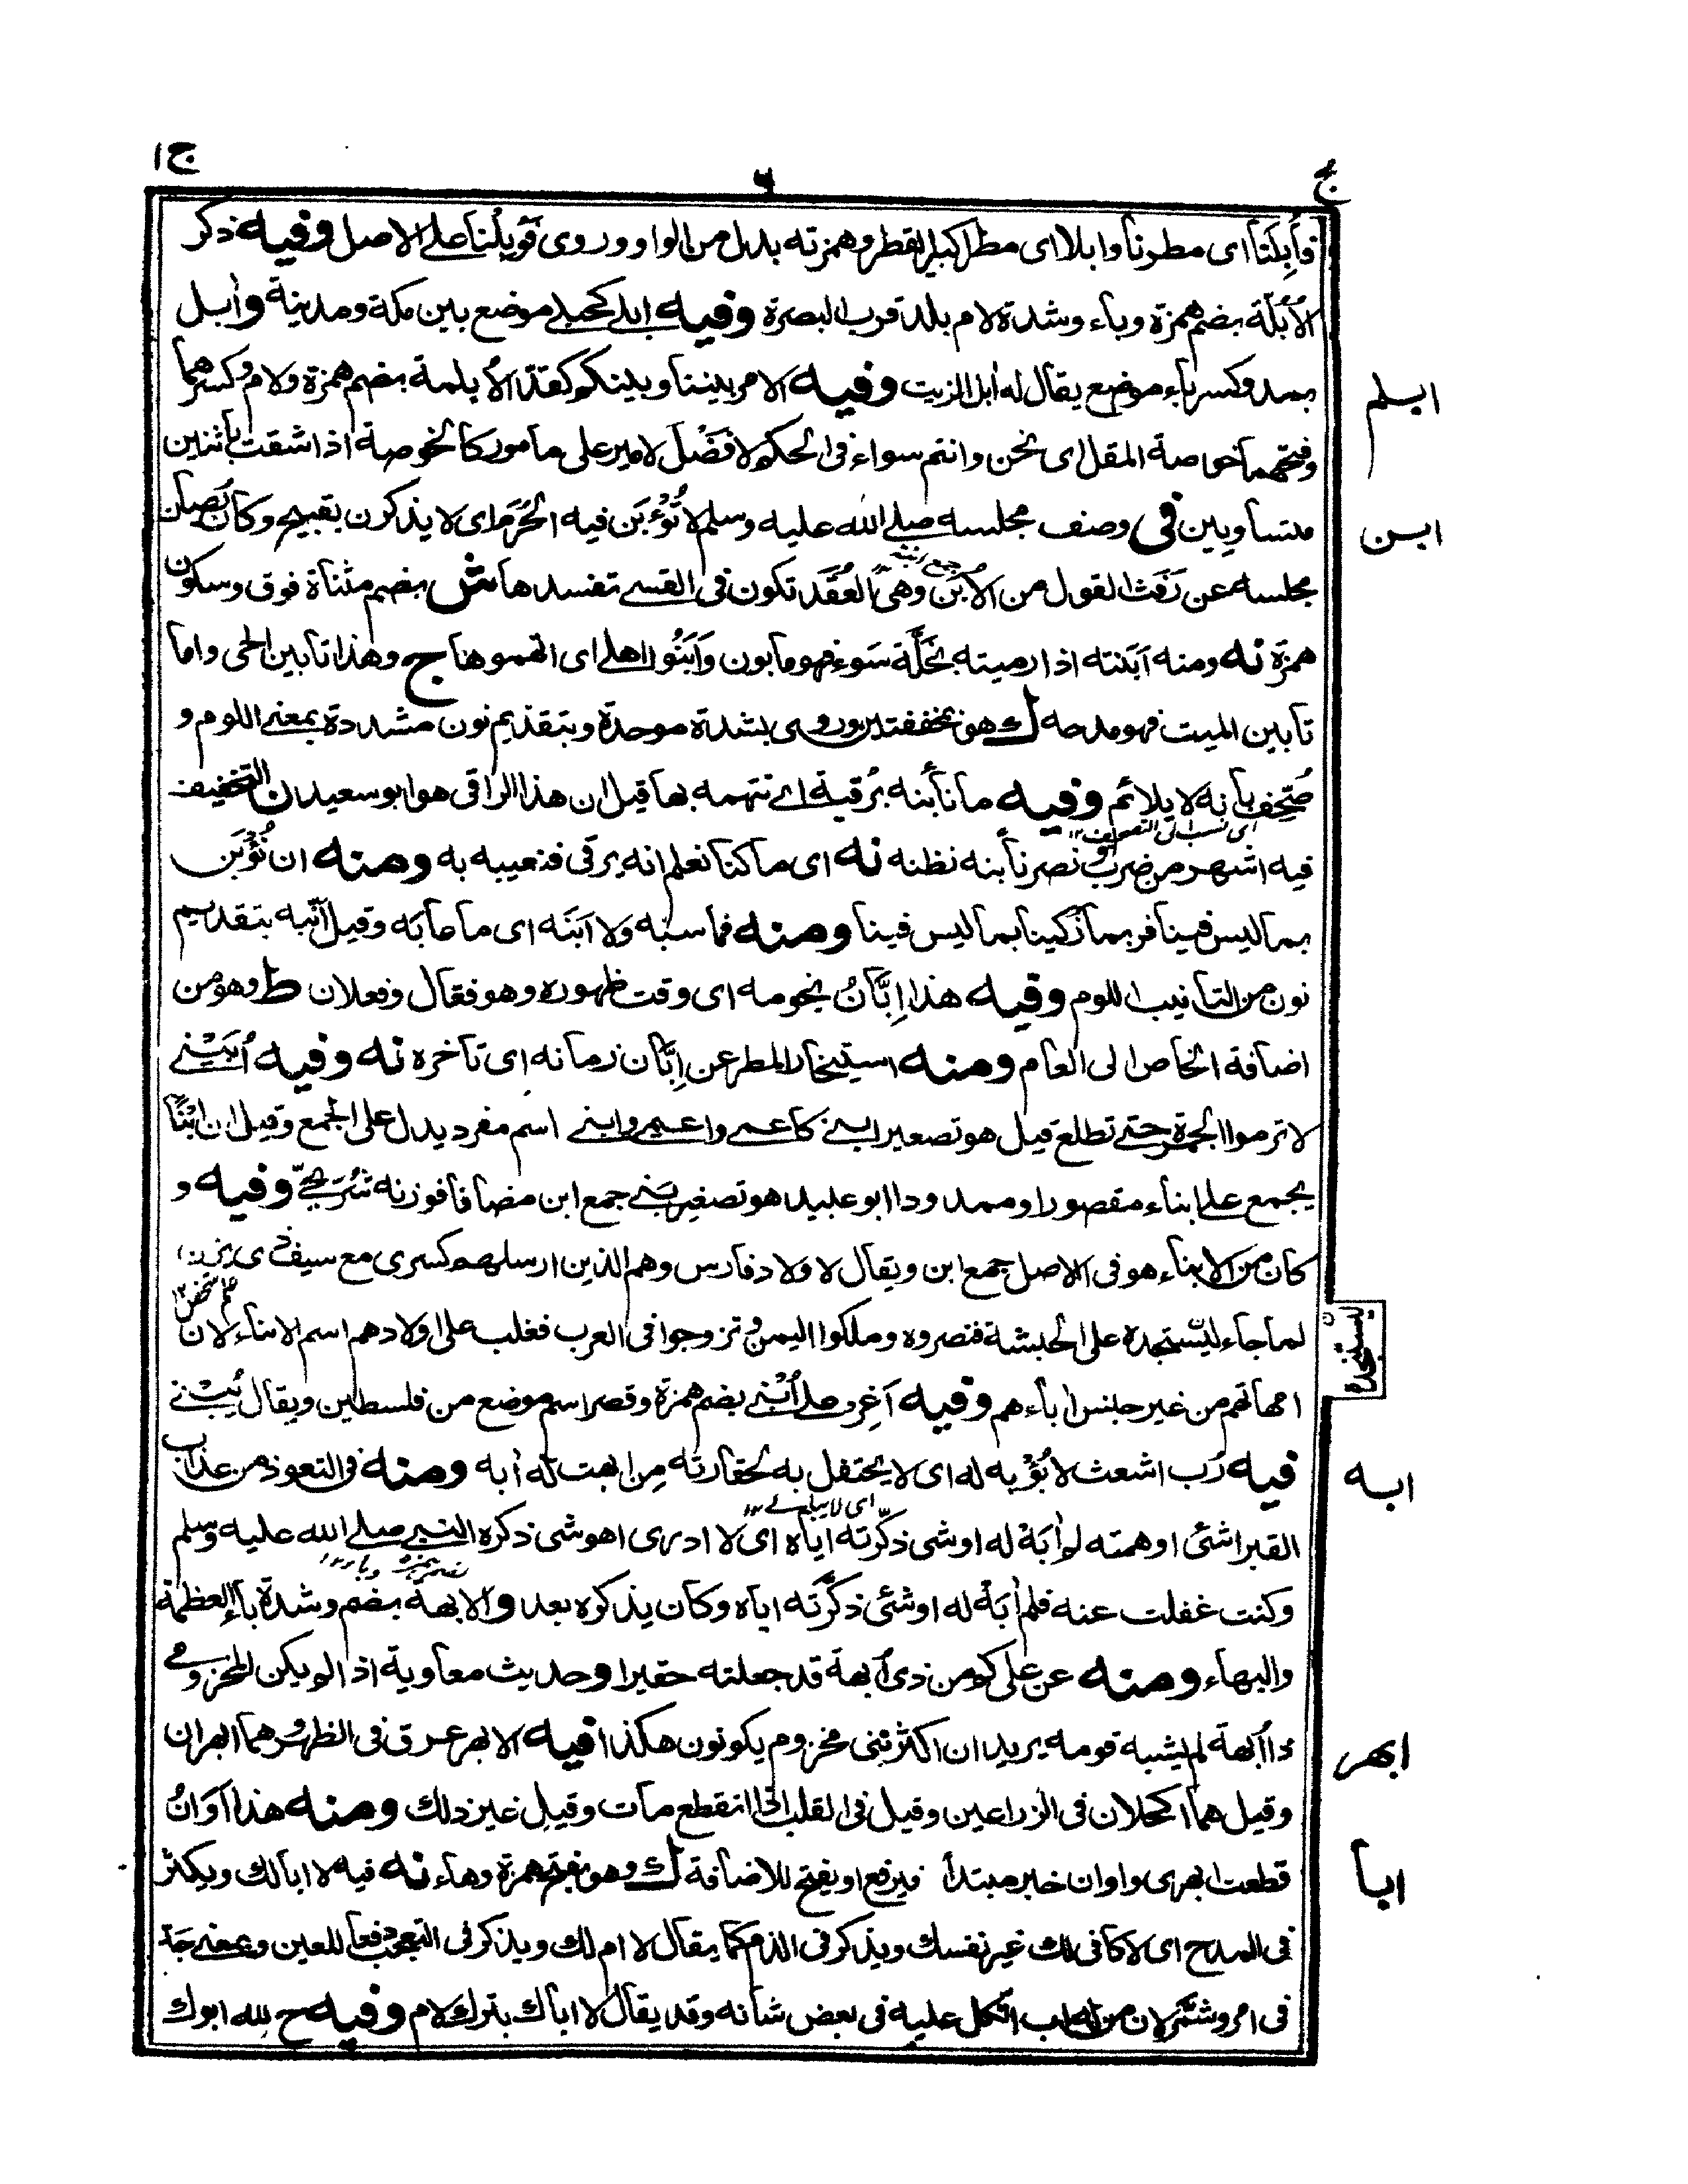 ج ١
٦
ج
فأُبِلْنا اى مطرنا وابلا اى مطرا كبير القطر وهمزته بدل من الواو وروى فوُبِلْنا على الاصل وفيه ذكر
الأُبُلّة بضم همزة وباء وشدة لام بلد قرب البصرة وفيه ابلى كحبلى موضع بين مكة ومدينة وأبل
بمد وكسر باء موضع يقال له ابل الزيت وفيه الامر بيننا وبينكم كقدّ الأُبلمة بضم همزة ولام وكسرهما
وفتحهما خوصة المقل اى نحن وانتم سواء فى الحكم لا فضل لامير على مامور كالخوصة اذا شقت باثنين
متساويين فى وصف مجلسه صلى الله عليه وسلم لا تُؤْبَن فيه الحُرَم اى لا يذكرن بقبيح وكان يصان
مجلسه عن رَفَث القول من الأُبَن وهى العُقَد تكون فى القسى تفسدها ش بضم مثناة فوق وسكون
جمع ابنة
همزة نه ومنه ابَنته اذا رميته بخَلّة سَوء فهو مابون وأبَنُوا اهلى اى اتهموها ج وهذا تابين الحى واما
تابين الميت فهو مدحه ك هو بخففتين وروى بشدة موحدة وبتقديم نون مشددة بمعنى اللوم و
صُحّف بانه لا يلائم وفيه ما نأبنه برُقية اى نتهمه بها قيل ان هذا الراقى هو ابو سعيد ن التخفيف
اى نسب الى التصحيف ١٢
فيه اشهر من ضرب ونصر نأبنه نظنه نه اى ما كنا نعلم انه يرقى فنعيبه به ومنه ان نُؤْبَن
بما ليس فينا فربما زكينا بما ليس فينا ومنه فما سبّه ولا ابَنَه اى ما عابَه وقيل أنّبه بتقديم
نون من التانيب اللوم وفيه هذا إِبّانُ نجومه اى وقت ظهوره وهو فعّال وفعلان ط وهو من
اضافة الخاص الى العام ومنه استيخار المطر عن إِبّان زمانه اى تاخره نه وفيه أُبَيْنى
لا ترموا الجمرة حتى تطلع قيل هو تصغير ابنى كاعمى واعيمى وابنى اسم مفرد يدل على الجمع وقيل ان ابْنًا
يجمع على ابناء مقصورا وممدودا ابو عبيد هو تصغير بَنِىّ جمع ابن مضافا فوزنه شُرَيجىّ وفيه و
كان من الابناء هو فى الاصل جمع ابن ويقال لاولاد فارس وهم الذين ارسلهم كسرى مع سيف ذى يزن
لما جاء ليستنجده على الحبشة فنصروه وملكوا اليمن وتزوجوا فى العرب فغلب على اولادهم اسم الابناء لان
امهاتهم من غير جنس اباءهم وفيه أغِر على أُبْنى بضم همزة وقصر اسم موضع من فلسطين ويقال يُبْنى
فيه رُب اشعث لا يُؤْبه له اى لا يحتفل به لحقارته من ابهت له أبه ومنه فى التعوذ من عذاب
القبر اشئ اوهمته لم ابَهْ له او شئ ذكّرته اياه اى لا ادرى اهو شئ ذكره النبى صلى الله عليه وسلم
وكنت غفلت عنه فلم ابَه له او شئ ذكّرته اياه وكان يذكره بعد والابهة بضم وشدة باء العظمة
والبهاء ومنه عن على كم من ذى أبهة قد جعلته حقيرا وحديث معاوية اذا لم يكن المخزومى
ذا أبهة لم يشبه قومه يريد ان اكثر بنى مخزوم يكونون هكذا فيه الابهر عرق فى الظهر وهما ابهران
وقيل هما اكحلان فى الذراعين وقيل فى القلب اذا انقطع مات وقيل غير ذلك ومنه هذا أوَانُ
قطعت ابهرى واوان خبر مبتدأ فيرفع او يفتح للاضافة ك وهو بفتح همزة وهاء نه فيه لا ابا لك ويكثر
فى المدح اى لا كافى لك غير نفسك ويذكر فى الذم كما يقال لا ام لك ويذكر فى التعجب دفعا للعين وبمعنى جَدّ
فى امر وشَمّر لان من له اب اتّكل عليه فى بعض شانه وقد يقال لا اباك بترك لام وفيه ح لله ابوك
ابلم
ابن
ليستنجده
ابه
ابهر
ابا